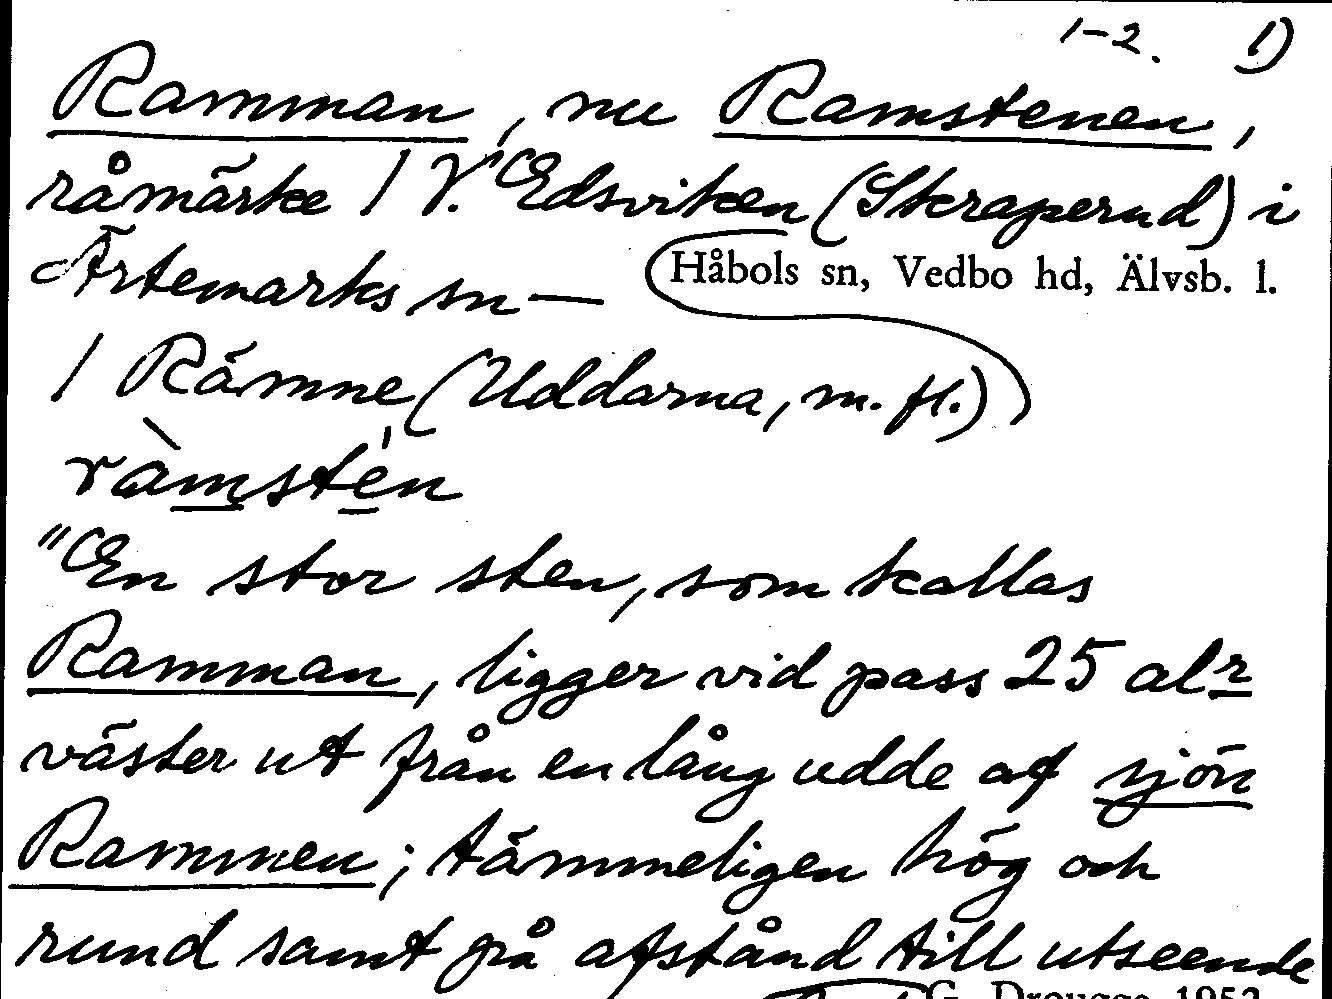 1-2. 1)
Ramman, nu Ramstenen,
råmärke / V. Edsviken (Skraperud) i
Ärtemarks sn —
Håbols sn, Vedbo hd, Älvsb. l.
/ Rämne (Uddarna, m. fl.)
ràmstén
"En stor sten, som kallas
Ramman, ligger vid pass 25 alr
väster ut från en lång udde af sjön
Rammen; tämmeligen hög och
rund samt på afstånd till utseende
G. Drougge 1952